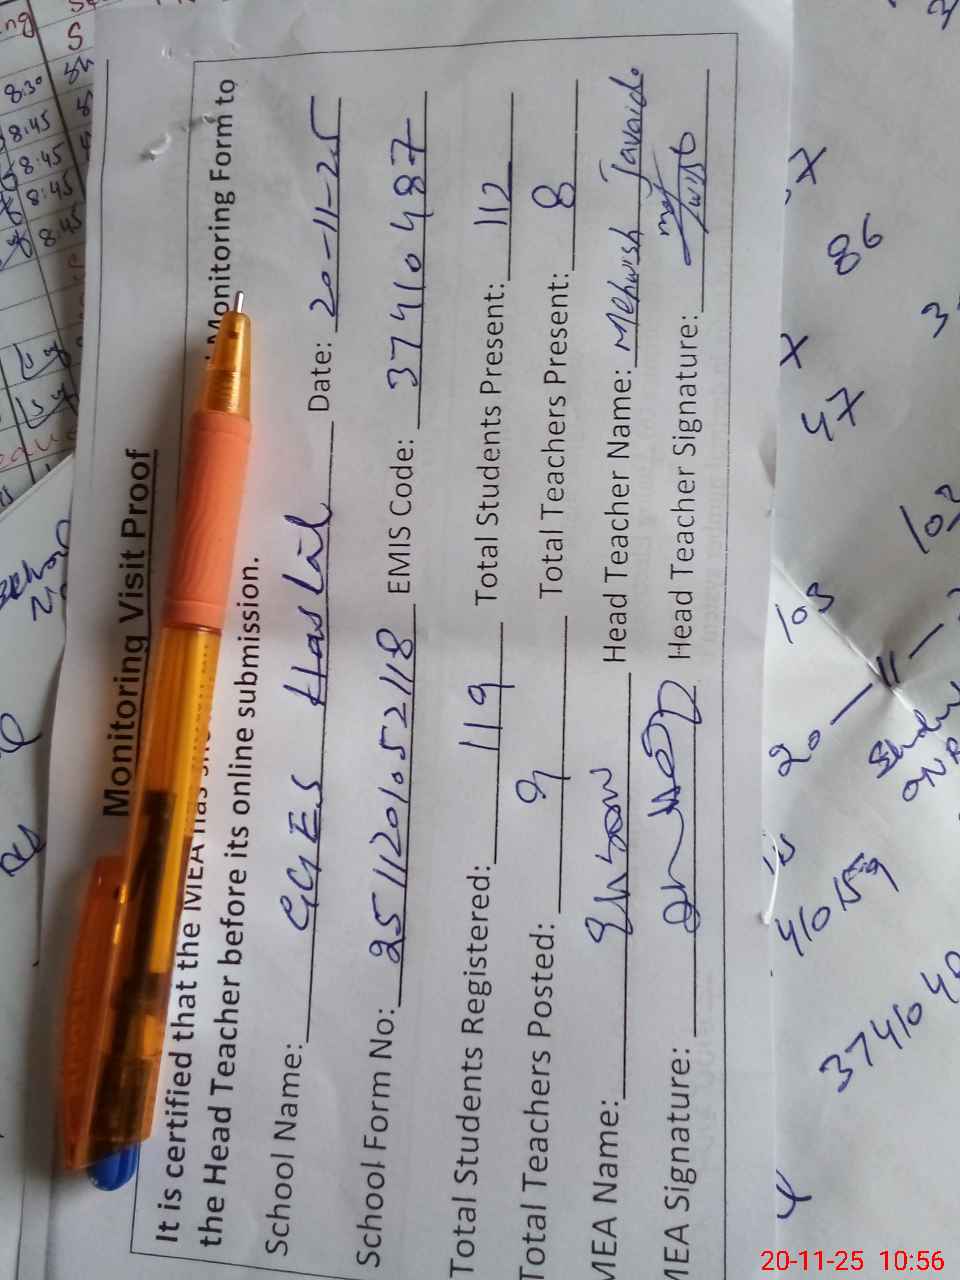 Monitoring Visit Proof
It is certified that the MEA has Monitoring Form to
the Head Teacher before its online submission.
School Name: GGES Haslal Date: 20-11-25
School Form No: 2511201052118 EMIS Code: 37410487
Total Students Registered: 119 Total Students Present: 112
Total Teachers Posted: 9 Total Teachers Present: 8
MEA Name: Head Teacher Name: Mehwish Javaid.
MEA Signature: Head Teacher Signature:
8:30
8:45
8:45
8:45
8:45
86
47
103
103
20-11-
410159
3741040
20-11-25 10:56